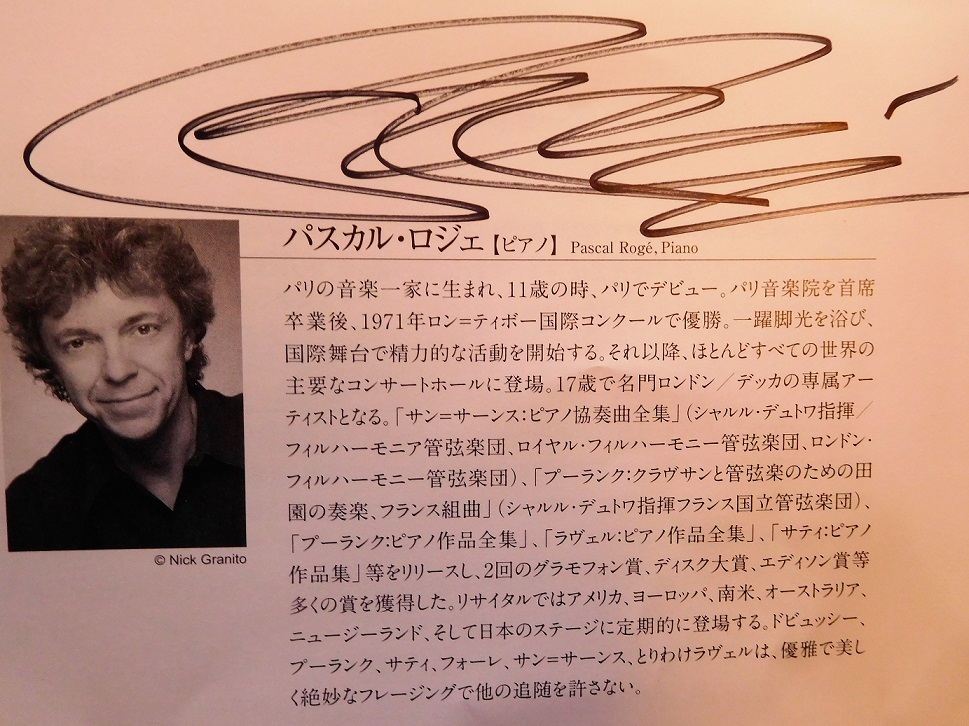 パスカル・ロジェ【ピアノ】 Pascal Rogé, Piano
パリの音楽一家に生まれ、11歳の時、パリでデビュー。パリ音楽院を首席
卒業後、1971年ロン=ティボー国際コンクールで優勝。一躍脚光を浴び、
国際舞台で精力的な活動を開始する。それ以降、ほとんどすべての世界の
主要なコンサートホールに登場。17歳で名門ロンドン／デッカの専属アー
ティストとなる。「サン=サーンス:ピアノ協奏曲全集」(シャルル・デュトワ指揮／
フィルハーモニア管弦楽団、ロイヤル・フィルハーモニー管弦楽団、ロンドン・
フィルハーモニー管弦楽団)、「プーランク:クラヴサンと管弦楽のための田
園の奏楽、フランス組曲」(シャルル・デュトワ指揮フランス国立管弦楽団)、
「プーランク:ピアノ作品全集」、「ラヴェル:ピアノ作品全集」、「サティ:ピアノ
作品集」等をリリースし、2回のグラモフォン賞、ディスク大賞、エディソン賞等
多くの賞を獲得した。リサイタルではアメリカ、ヨーロッパ、南米、オーストラリア、
ニュージーランド、そして日本のステージに定期的に登場する。ドビュッシー、
プーランク、サティ、フォーレ、サン=サーンス、とりわけラヴェルは、優雅で美し
く絶妙なフレージングで他の追随を許さない。
© Nick Granito